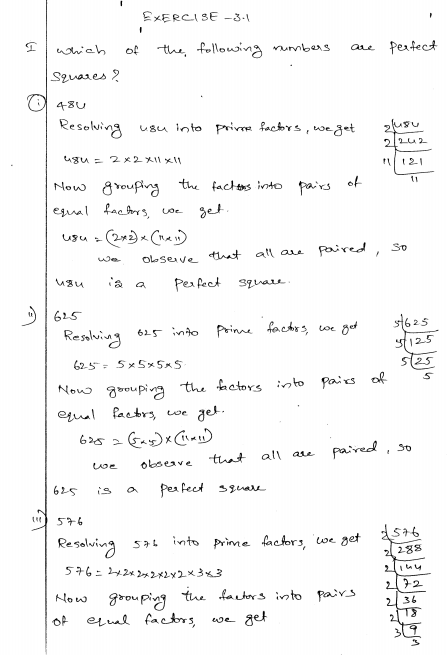 EXERCISE - 3.1
I which of the following numbers are perfect
squares?
(i) 484
Resolving 484 into prime factors, we get
2 | 484
2 | 242
11 | 121
11
484 = 2×2×11×11
Now grouping the factors into pairs of
equal factors, we get.
484 = (2×2)×(11×11)
we observe that all are paired, so
484 is a perfect square.
ii) 625
Resolving 625 into prime factors, we get
5 | 625
5 | 125
5 | 25
5
625 = 5×5×5×5.
Now grouping the factors into pairs of
equal factors, we get.
625 = (5×5)×(11×11)
we observe that all are paired, so
625 is a perfect square
iii) 576
Resolving 576 into prime factors, we get
2 | 576
2 | 288
2 | 144
2 | 72
2 | 36
2 | 18
3 | 9
3
576 = 2×2×2×2×2×2×3×3
Now grouping the factors into pairs
of equal factors, we get